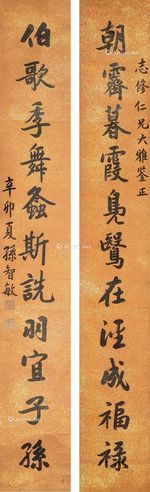 志修仁兄大雅鉴正
朝霽暮霞鳧鷖在涇成福祿
伯歌季舞螽斯詵羽宜子孫
辛卯夏孫智敏